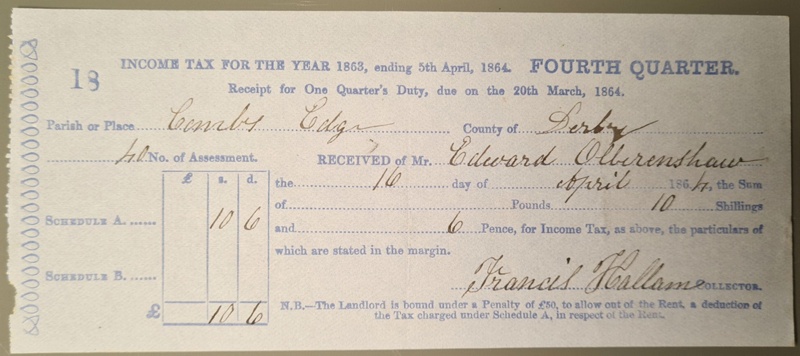 18
INCOME TAX FOR THE YEAR 1863, ending 5th April, 1864. FOURTH QUARTER.
Receipt for One Quarter's Duty, due on the 20th March, 1864.
Parish or Place Combs Edge County of Derby
40 No. of Assessment. RECEIVED of Mr. Edward Ollerenshaw
£ s. d. the 16 day of April 1864, the Sum
of Pounds 10 Shillings
SCHEDULE A. 10 6 and 6 Pence, for Income Tax, as above, the particulars of
which are stated in the margin.
SCHEDULE B. Francis Hallam COLLECTOR.
£ 10 6 N.B.—The Landlord is bound under a Penalty of £50, to allow out of the Rent, a deduction of
the Tax charged under Schedule A, in respect of the Rent.